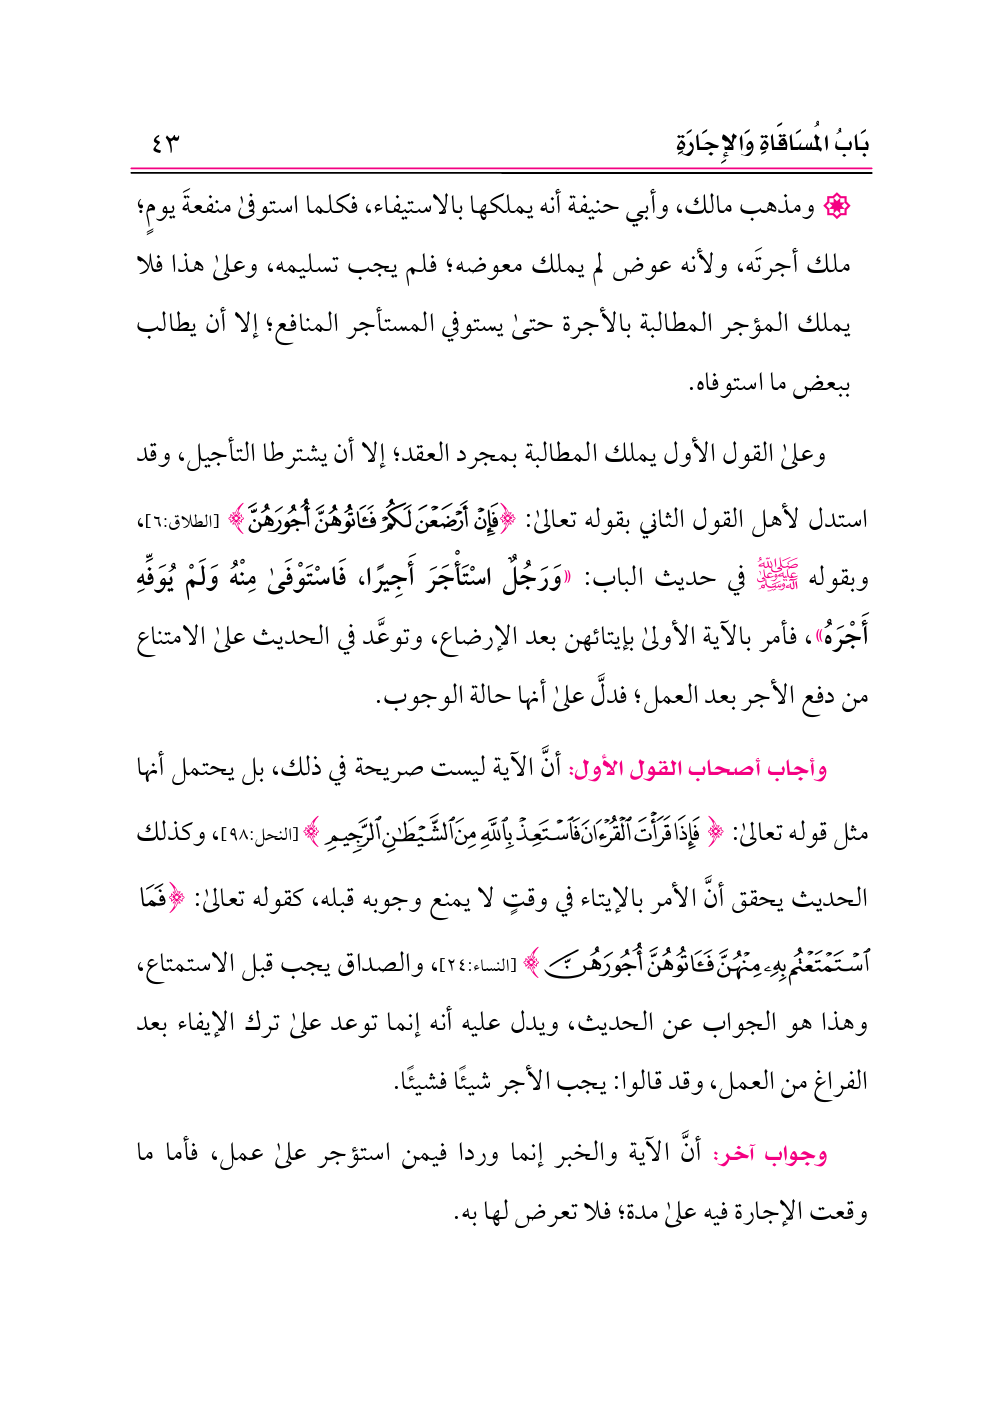 بَابُ المُسَاقَاةِ وَالإِجَارَةِ ٤٣
ومذهب مالك، وأبي حنيفة أنه يملكها بالاستيفاء، فكلما استوفىٰ منفعةَ يومٍ؛
ملك أجرتَه، ولأنه عوض لم يملك معوضه؛ فلم يجب تسليمه، وعلىٰ هذا فلا
يملك المؤجر المطالبة بالأجرة حتىٰ يستوفي المستأجر المنافع؛ إلا أن يطالب
ببعض ما استوفاه.
وعلىٰ القول الأول يملك المطالبة بمجرد العقد؛ إلا أن يشترطا التأجيل، وقد
استدل لأهل القول الثاني بقوله تعالىٰ: ﴿فَإِنْ أَرْضَعْنَ لَكُمْ فَـَٔاتُوهُنَّ أُجُورَهُنَّ﴾ [الطلاق:٦]،
وبقوله ﷺ في حديث الباب: «وَرَجُلٌ اسْتَأْجَرَ أَجِيرًا، فَاسْتَوْفَىٰ مِنْهُ وَلَمْ يُوَفِّهِ
أَجْرَهُ»، فأمر بالآية الأولىٰ بإيتائهن بعد الإرضاع، وتوعَّد في الحديث علىٰ الامتناع
من دفع الأجر بعد العمل؛ فدلَّ علىٰ أنها حالة الوجوب.
وأجاب أصحاب القول الأول: أنَّ الآية ليست صريحة في ذلك، بل يحتمل أنها
مثل قوله تعالىٰ: ﴿فَإِذَا قَرَأْتَ ٱلْقُرْءَانَ فَٱسْتَعِذْ بِٱللَّهِ مِنَ ٱلشَّيْطَٰنِ ٱلرَّجِيمِ﴾ [النحل:٩٨]، وكذلك
الحديث يحقق أنَّ الأمر بالإيتاء في وقتٍ لا يمنع وجوبه قبله، كقوله تعالىٰ: ﴿فَمَا
ٱسْتَمْتَعْتُم بِهِۦ مِنْهُنَّ فَـَٔاتُوهُنَّ أُجُورَهُنَّ﴾ [النساء:٢٤]، والصداق يجب قبل الاستمتاع،
وهذا هو الجواب عن الحديث، ويدل عليه أنه إنما توعد علىٰ ترك الإيفاء بعد
الفراغ من العمل، وقد قالوا: يجب الأجر شيئًا فشيئًا.
وجواب آخر: أنَّ الآية والخبر إنما وردا فيمن استؤجر علىٰ عمل، فأما ما
وقعت الإجارة فيه علىٰ مدة؛ فلا تعرض لها به.